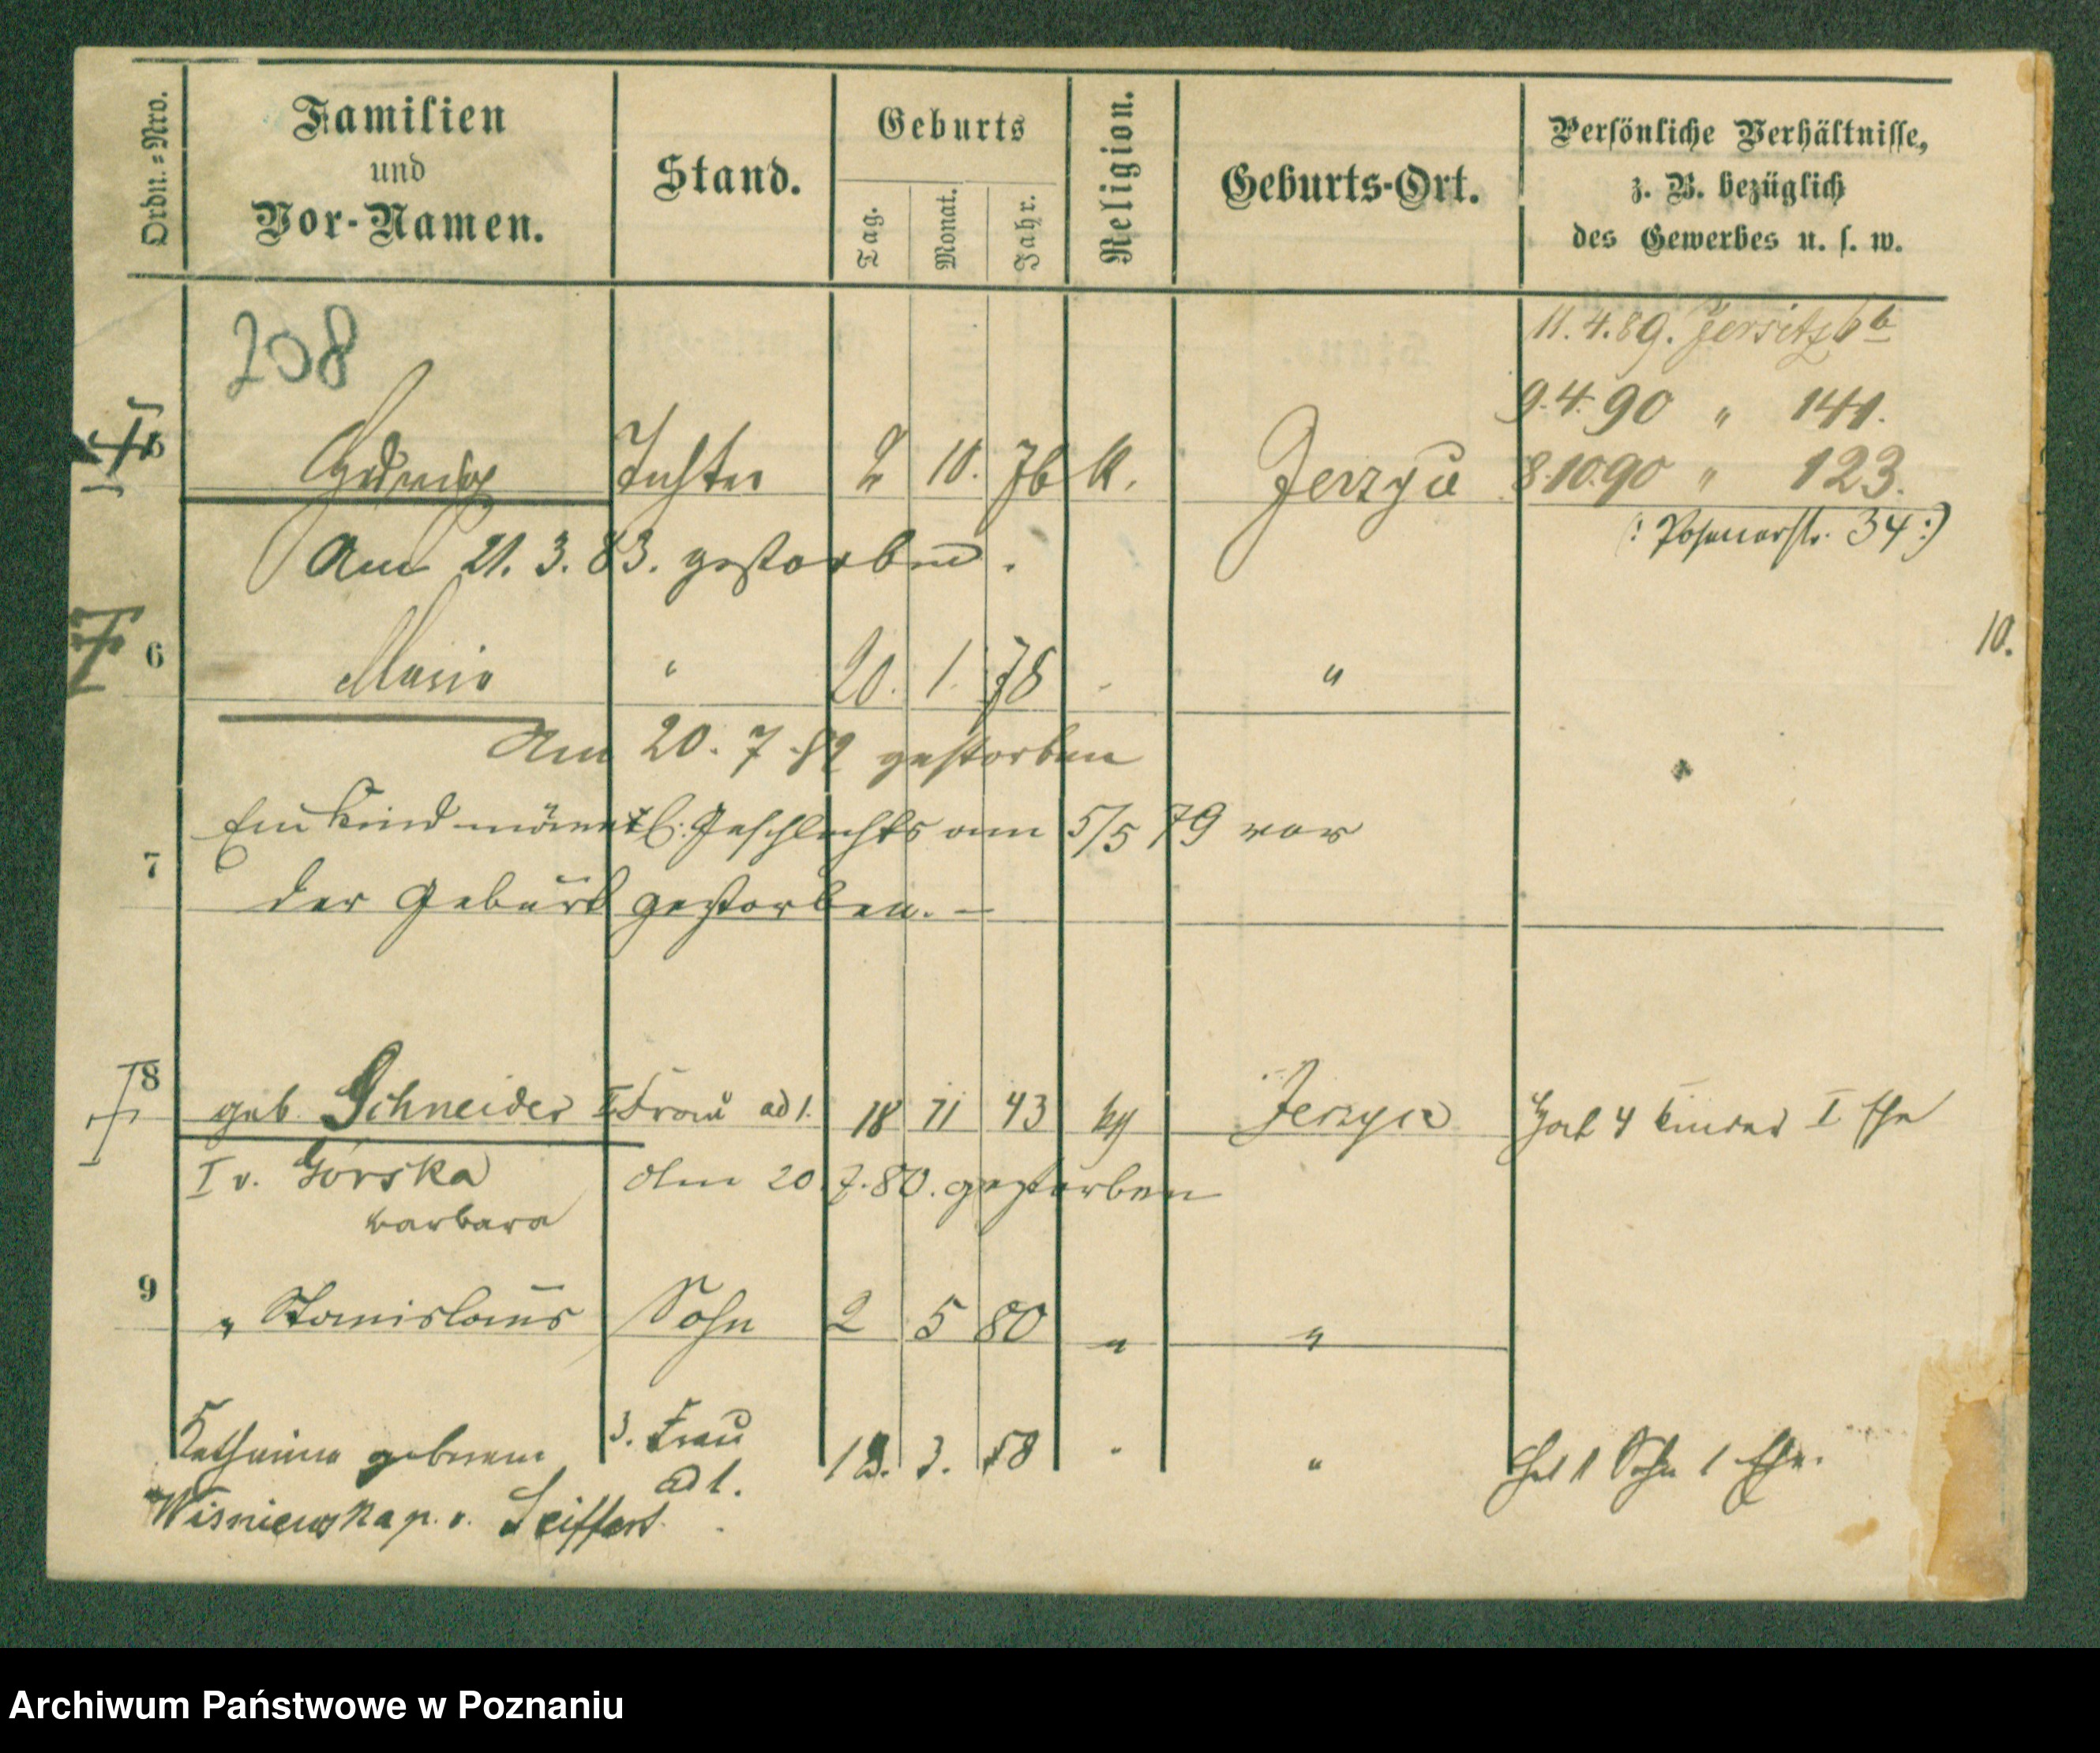 Ordn.=Nro.
Familien
und
Vor-Namen.
Stand.
Geburts
Tag.
Monat.
Jahr.
Religion.
Geburts-Ort.
Persönliche Verhältnisse,
z. B. bezüglich
des Gewerbes u. s. w.
208
11. 4. 89. Jersitz 6 b
9. 4. 90 " 141.
5 Hedwig Tochter 2 10. 76 k. Jerzyce 8. 10. 90 " 123.
(: Posenerstr. 34 :)
Am 21. 3. 83. gestorben.
10.
6 Maria " 20. 1. 78 " "
Am 20. 7. 82 gestorben
7 Ein Kind männl. Geschlechts am 5/5 79 vor
der Geburt gestorben. –
8 geb. Schneider II Frau ad 1. 18 11 43 Jerzyce Hat 4 Kinder I Ehe
I v. Górska Am 20. 7. 80. gestorben
barbara
9 " Stanislaus Sohn 2 5 80 " "
Katharina geborene 3. Frau 13. 3. 58 " " Hat 1 Sohn 1 Ehe.
ad 1.
Wisniewska p. v. Seiffert.
Archiwum Państwowe w Poznaniu